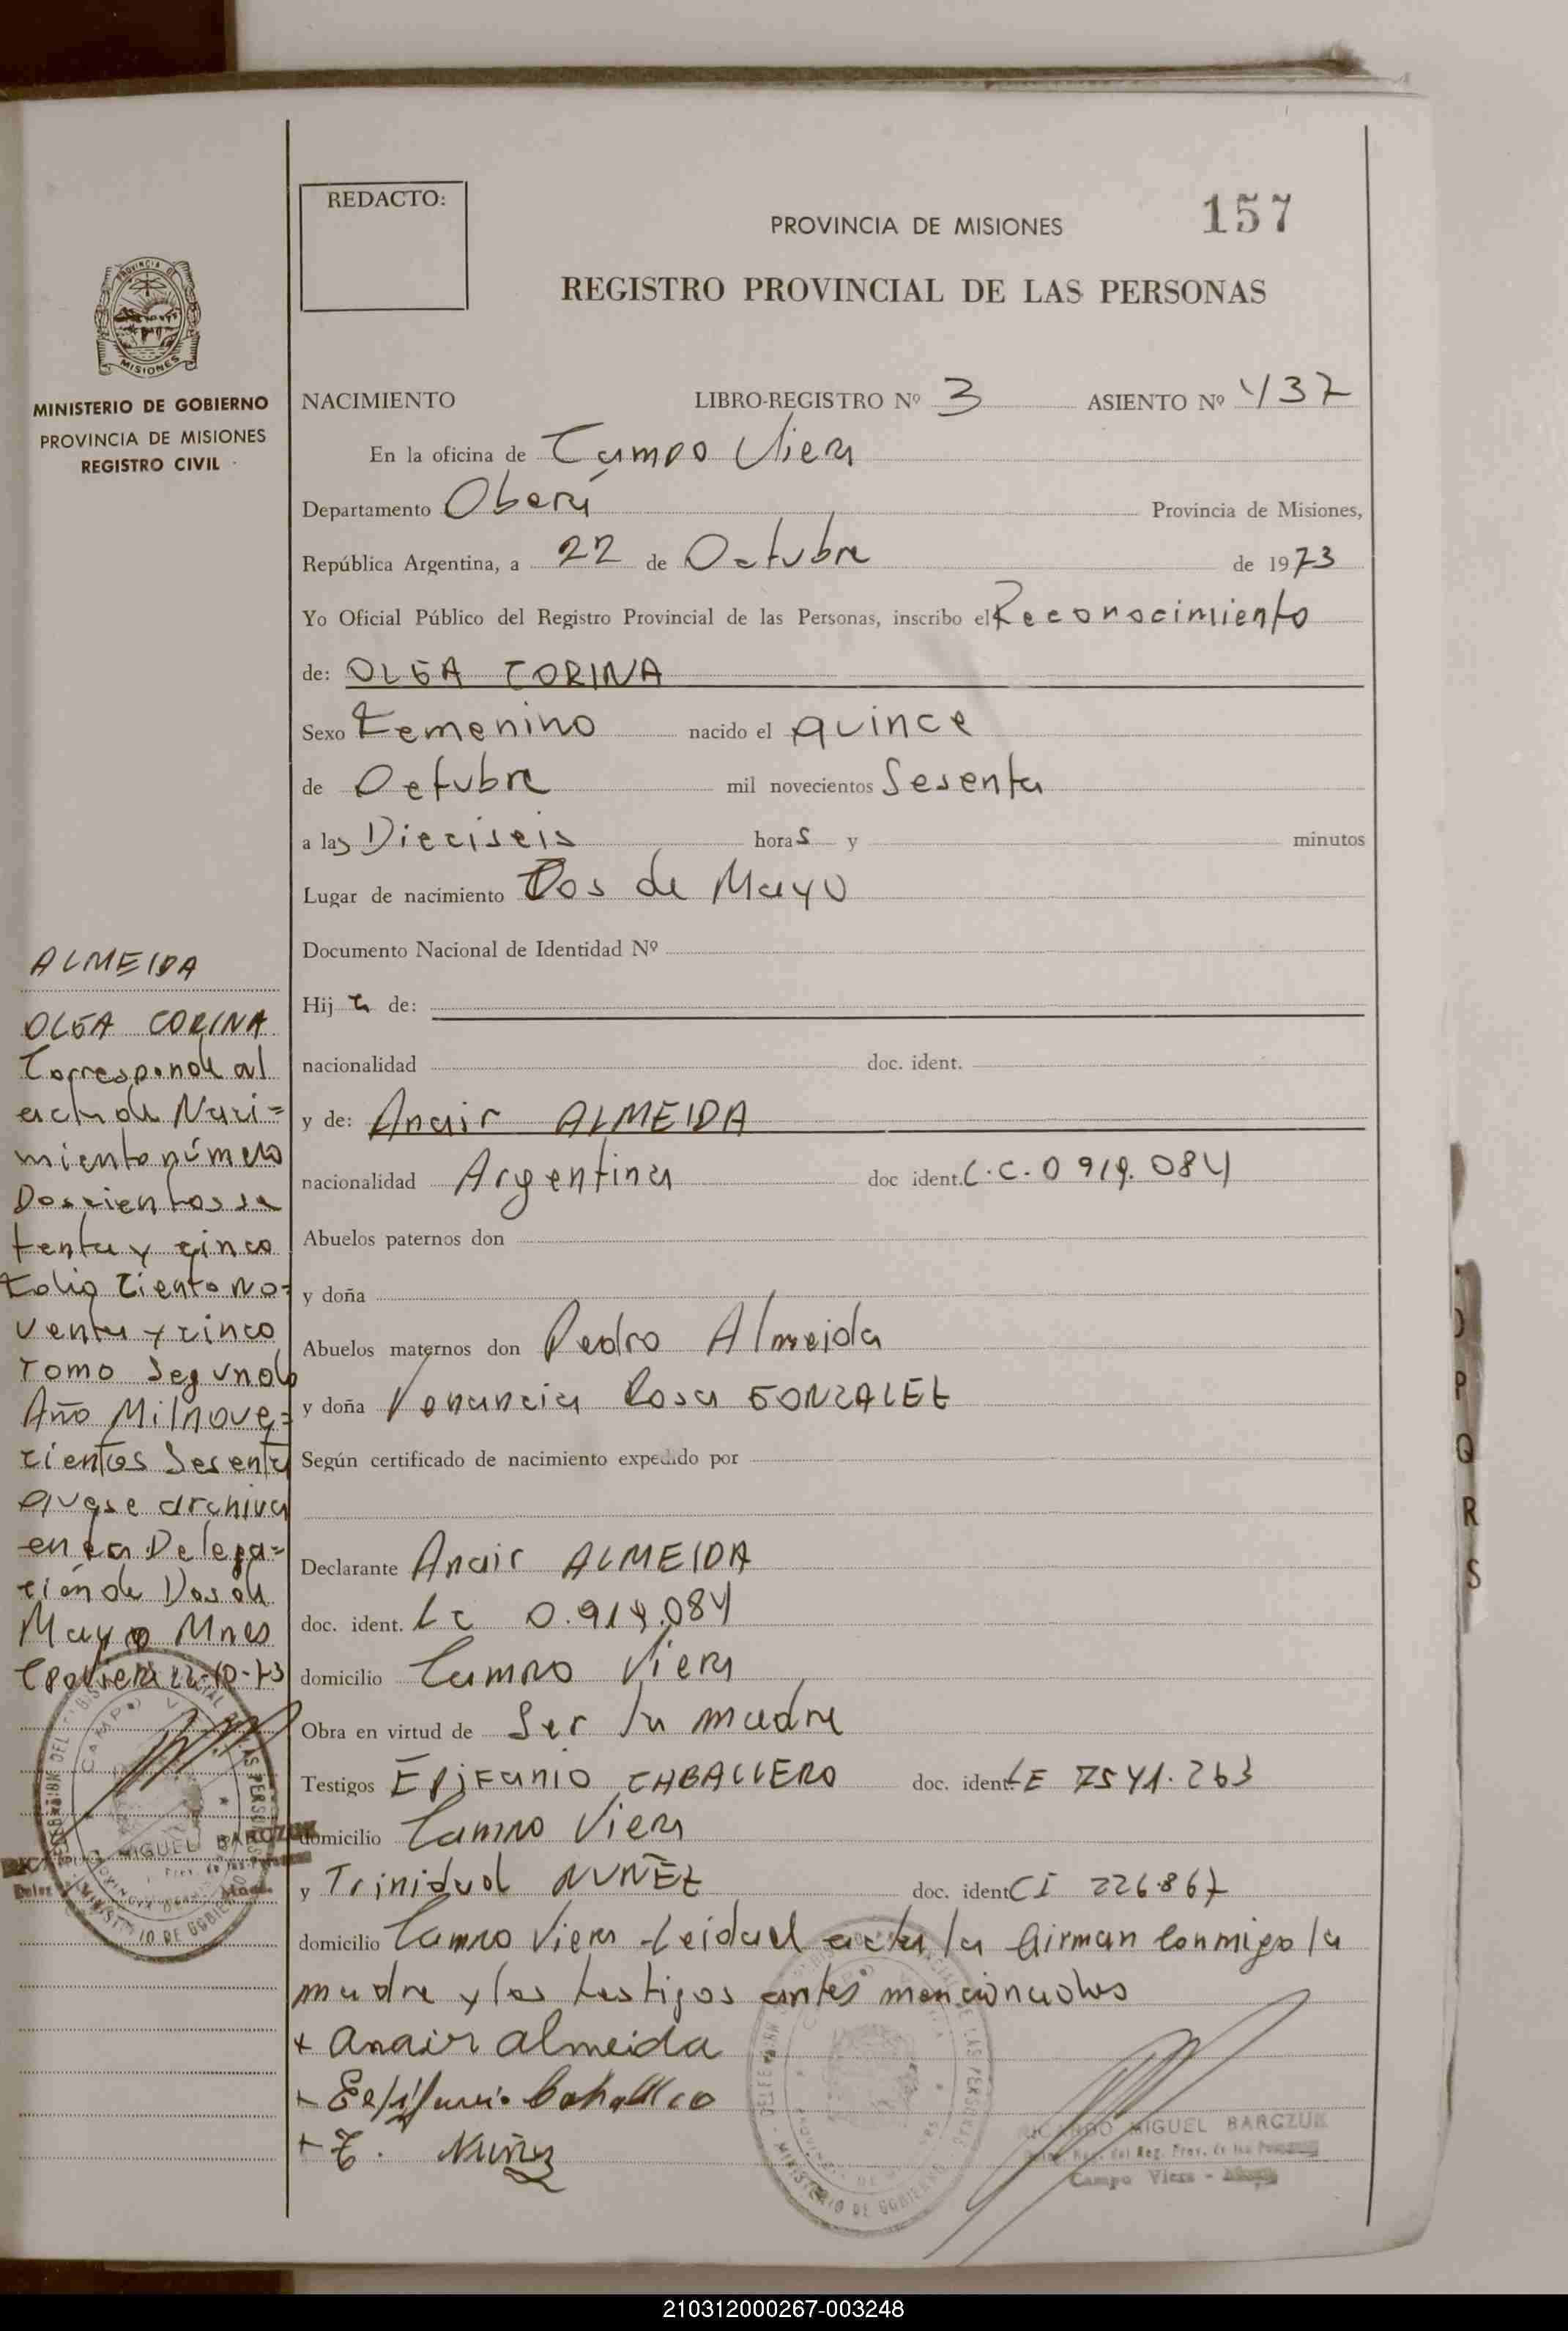 REDACTO:
PROVINCIA DE MISIONES
157
REGISTRO PROVINCIAL DE LAS PERSONAS
PROVINCIA DE
MISIONES
MINISTERIO DE GOBIERNO
PROVINCIA DE MISIONES
REGISTRO CIVIL
NACIMIENTO LIBRO-REGISTRO Nº 3 ASIENTO Nº 437
En la oficina de Campo Viera
Departamento Oberá Provincia de Misiones,
República Argentina, a 22 de Octubre de 1973
Yo Oficial Público del Registro Provincial de las Personas, inscribo el Reconocimiento
de: OLGA CORINA
Sexo Femenino nacido el quince
de Octubre mil novecientos Sesenta
a las Dieciseis horas y minutos
Lugar de nacimiento Dos de Mayo
Documento Nacional de Identidad Nº
Hija de:
nacionalidad doc. ident.
y de: Anair ALMEIDA
nacionalidad Argentina doc ident. L.C. 0.919.084
Abuelos paternos don
y doña
Abuelos maternos don Pedro Almeida
y doña Venancia Rosa GONZALEZ
Según certificado de nacimiento expedido por
Declarante Anair ALMEIDA
doc. ident. LC 0.919.084
domicilio Campo Viera
Obra en virtud de Ser la madre
Testigos Epifanio CABALLERO doc. ident. LE 7541.263
domicilio Campo Viera
y Trinidad NUÑEZ doc. ident CI 226.867
domicilio Campo Viera - Leida el acta la firman conmigo la
madre y los testigos antes mencionados
+ Anair Almeida
+ Epifanio Caballero
+ T. Nuñez
ALMEIDA
OLGA CORINA
Corresponde al
acta de Naci=
miento número
Doscientos se
tenta y cinco
Folio Ciento No=
venta y cinco
Tomo Segundo
Año Mil nove=
cientos Sesenta
que se archiva
en la Delega=
ción de Dos de
Mayo Mnes
Cpo Viera 22-10-73
MIGUEL BARCZUK
CAMPO VIERA
MINISTERIO DE GOBIERNO
RICARDO MIGUEL BARCZUK
Deleg. Reg. del Reg. Prov. de las Personas
Campo Viera -
MINISTERIO DE GOBIERNO
P
Q
R
S
210312000267-003248